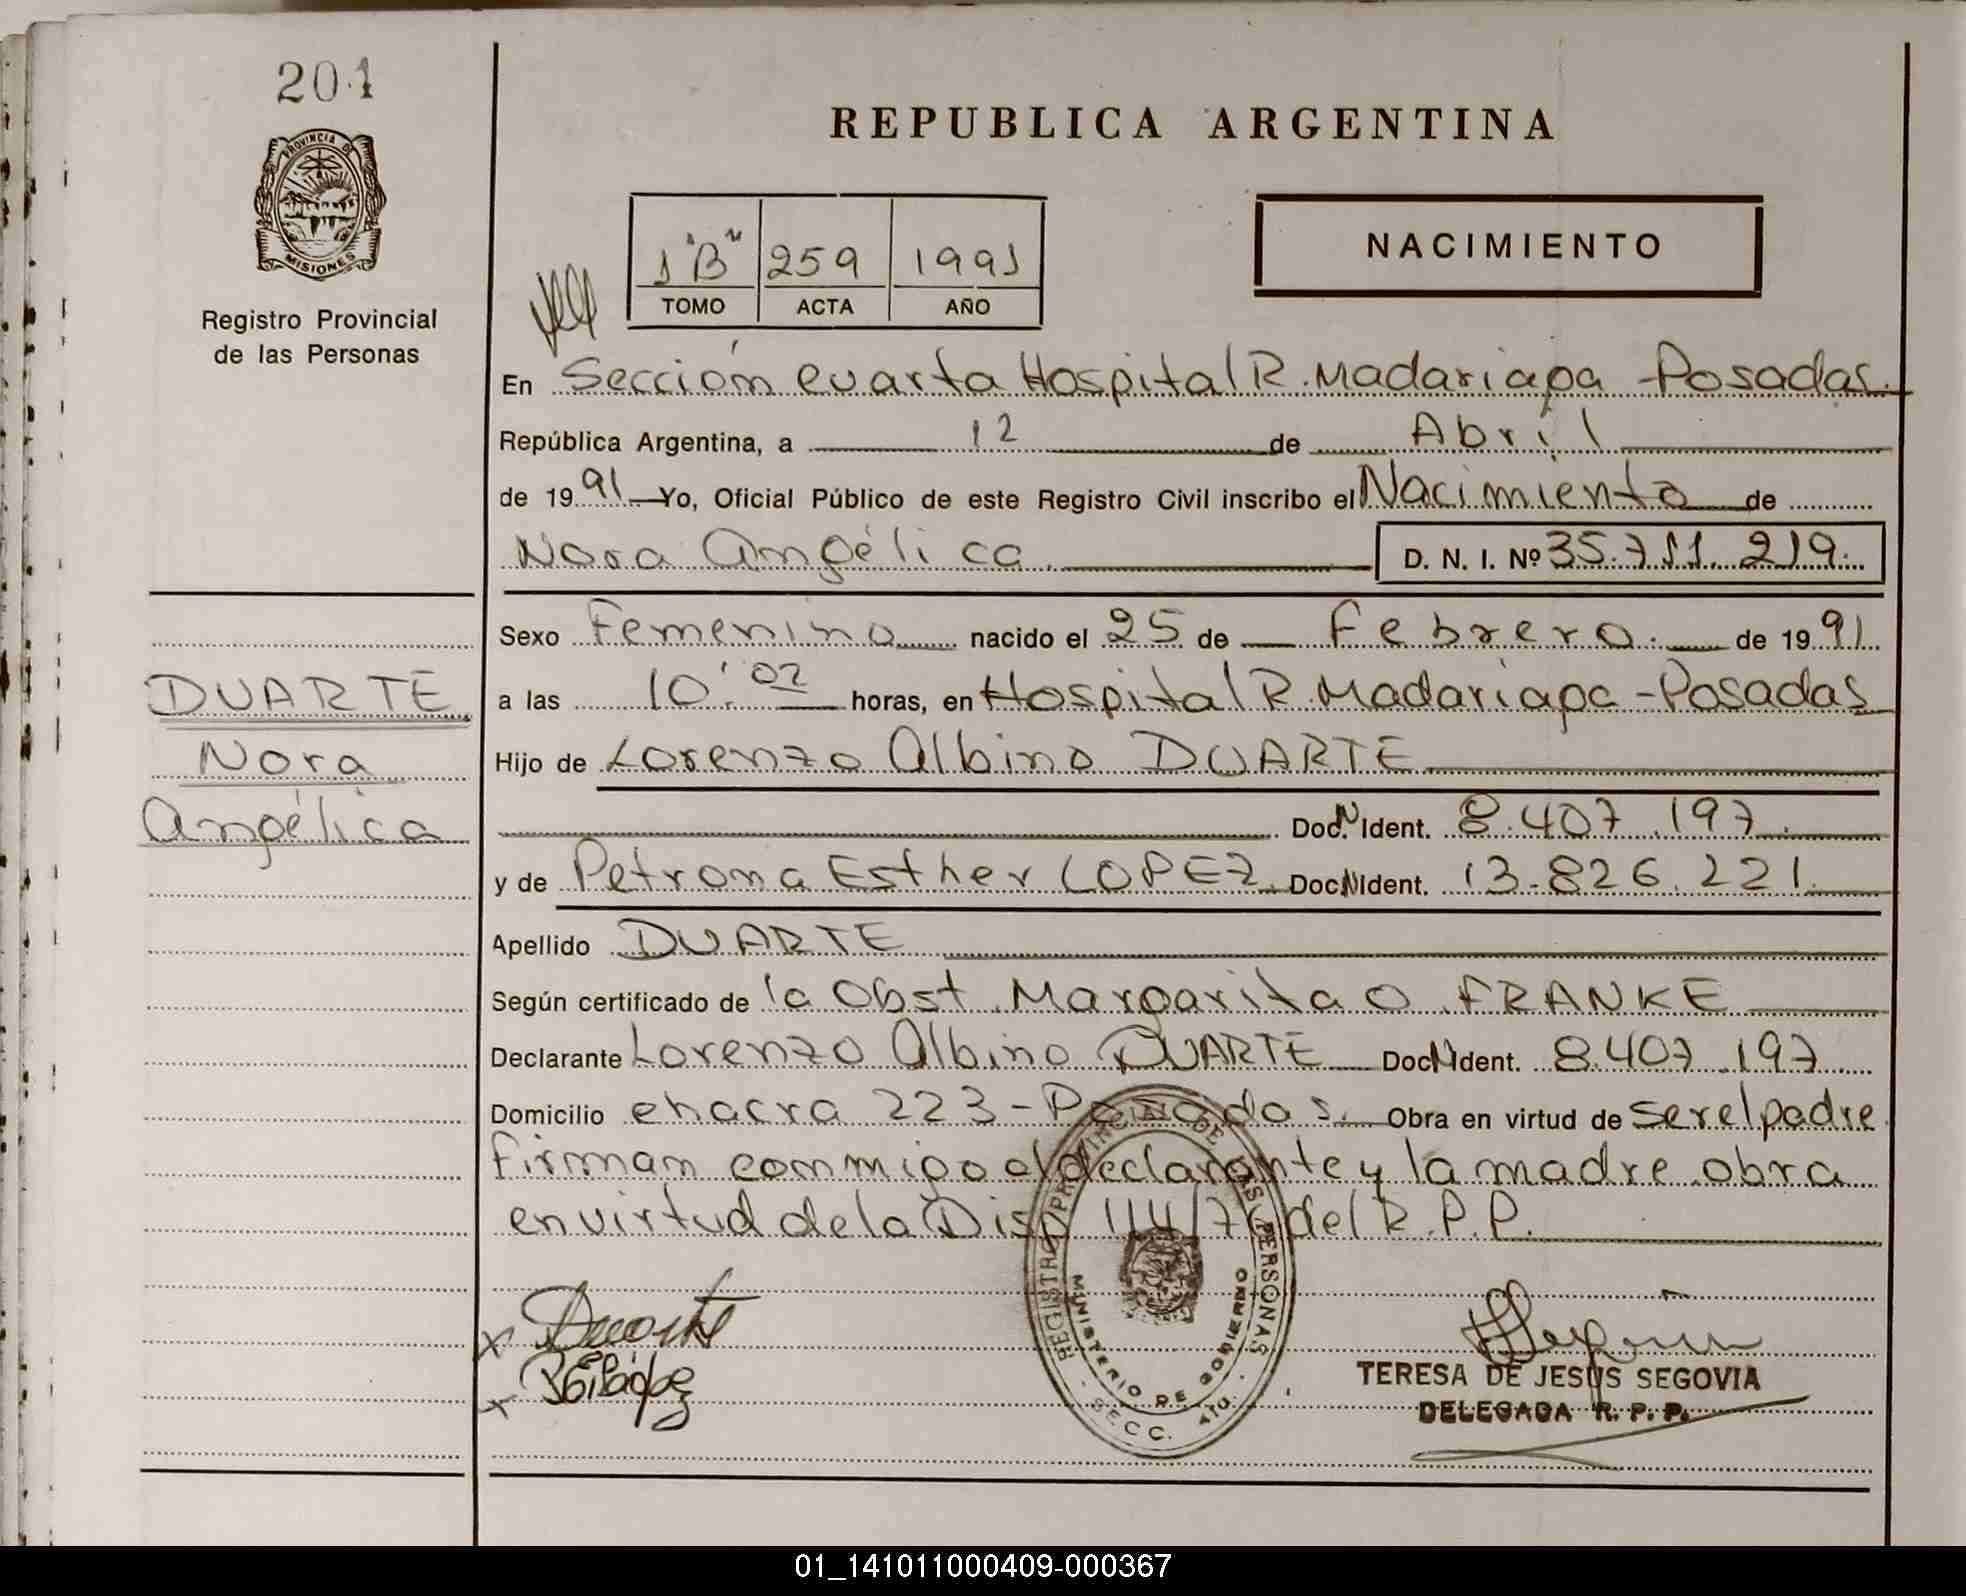 201
PROVINCIA DE
MISIONES
Registro Provincial
de las Personas
REPUBLICA ARGENTINA
1 "B" 259 1991
TOMO ACTA AÑO
NACIMIENTO
En Sección cuarta Hospital R. Madariaga - Posadas.
República Argentina, a 12 de Abril
de 1991 Yo, Oficial Público de este Registro Civil inscribo el Nacimiento de
Nora Angélica D. N. I. Nº 35.711.219.
Sexo Femenino nacido el 25 de Febrero. de 1991
a las 10:02 horas, en Hospital R. Madariaga - Posadas
Hijo de Lorenzo Albino DUARTE
Doc. N Ident. 8.407.197.
y de Petrona Esther LOPEZ. Doc. N Ident. 13.826.221.
Apellido DUARTE
Según certificado de la Obst. Margarita O. FRANKE
Declarante Lorenzo Albino DUARTE Doc. N Ident. 8.407.197
Domicilio chacra 223 - Posadas. Obra en virtud de ser el padre
firman conmigo el declarante y la madre. obra
en virtud de la Disp. 114/7 del R.P.P.
DUARTE
Nora
Angélica
x Duarte
x
REGISTRO PROVINCIAL DE LAS PERSONAS
MINISTERIO DE GOBIERNO
SECC. 4TA.
TERESA DE JESUS SEGOVIA
DELEGADA R. P. P.
01_141011000409-000367